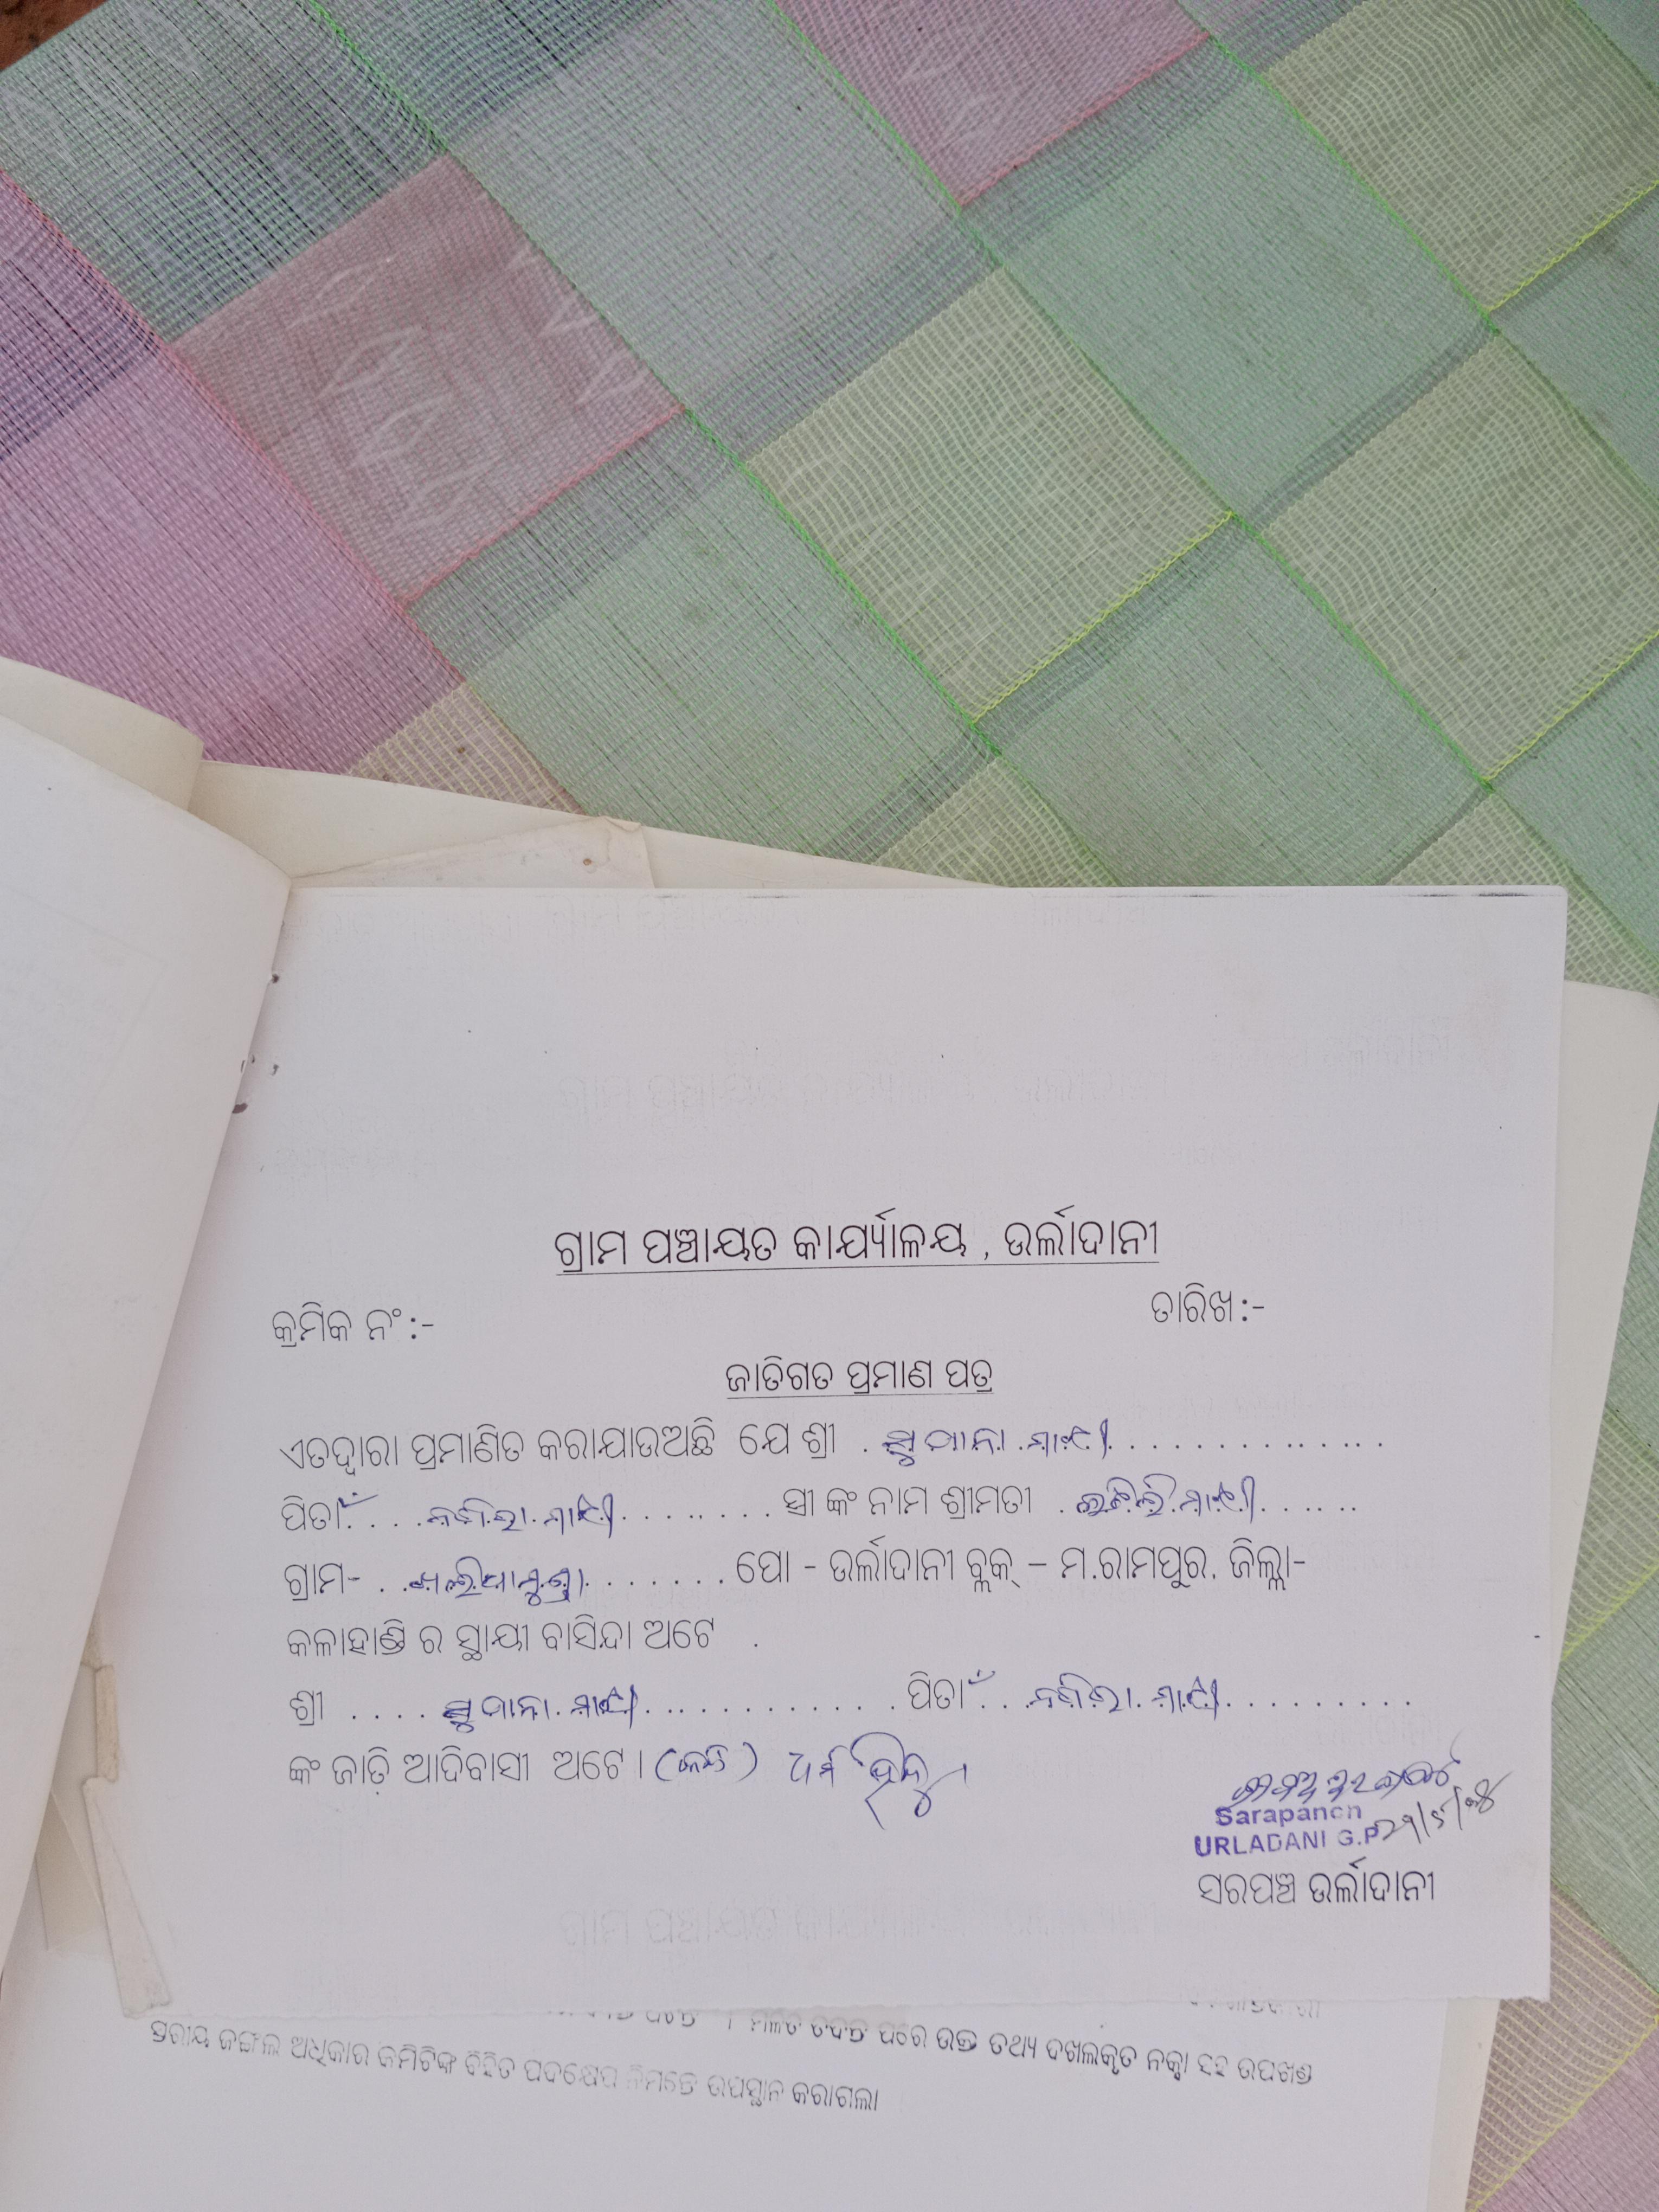 ଗ୍ରାମ ପଞ୍ଚାୟତ କାର୍ଯ୍ୟାଳୟ , ଉର୍ଲାଦାନୀ
କ୍ରମିକ ନଂ :-
ତାରିଖ :-
ଜାତିଗତ ପ୍ରମାଣ ପତ୍ର
ଏତଦ୍ୱାରା ପ୍ରମାଣିତ କରାଯାଉଅଛି ଯେ ଶ୍ରୀ . ସୁଦାନା ମାଝୀ
ପିତାଁ ମାଝୀ ସ୍ତ୍ରୀ ଙ୍କ ନାମ ଶ୍ରୀମତୀ ମାଝୀ
ଗ୍ରାମ- ପୋ - ଉର୍ଲାଦାନୀ ବ୍ଲକ୍ – ମ.ରାମପୁର. ଜିଲ୍ଲା-
କଳାହାଣ୍ଡି ର ସ୍ଥାୟୀ ବାସିନ୍ଦା ଅଟେ .
ଶ୍ରୀ .... ସୁଦାନା ମାଝୀ ପିତାଁ ମାଝୀ
ଙ୍କ ଜାତି ଆଦିବାସୀ ଅଟେ । (କନ୍ଧ) ଧର୍ମ ହିନ୍ଦୁ ।
Sarapanch
URLADANI G.P
ସରପଞ୍ଚ ଉର୍ଲାଦାନୀ
ପରେ ଉକ୍ତ ତଥ୍ୟ ଦଖଲକୃତ ନକ୍ସା ସହ ଉପଖଣ୍ଡ
ସ୍ତରୀୟ ଜଙ୍ଗଲ ଅଧିକାର କମିଟିଙ୍କ ବିହିତ ପଦକ୍ଷେପ ନିମନ୍ତେ ଉପସ୍ଥାନ କରାଗଲା